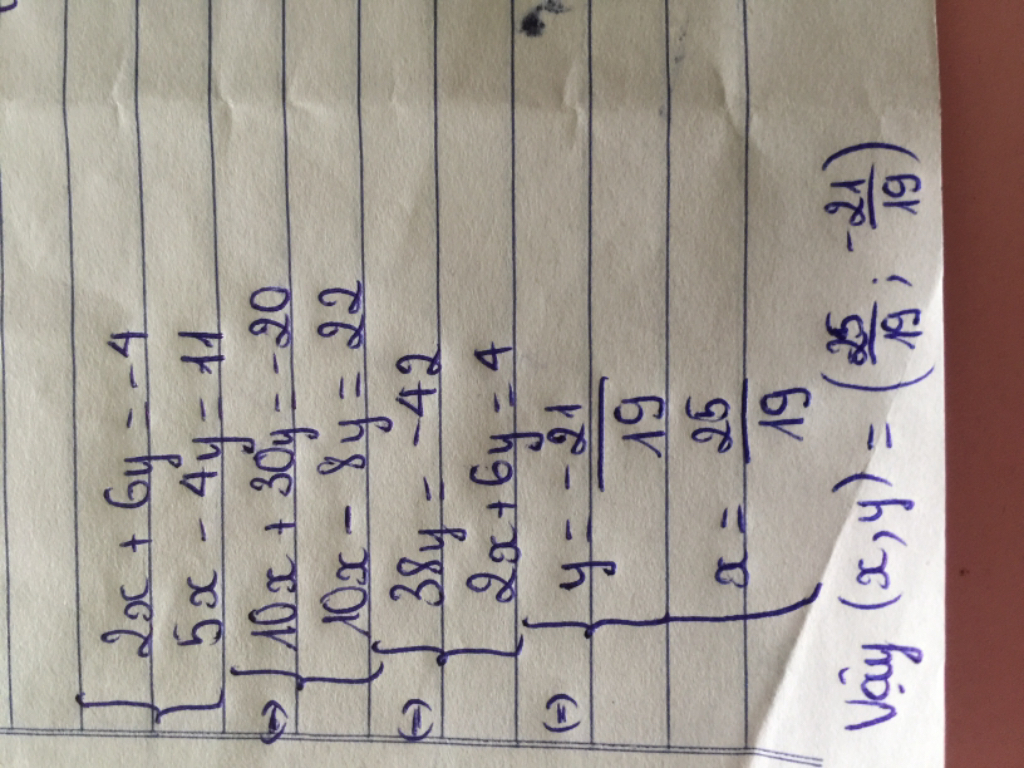 { 2x + 6y = -4
5x - 4y = 11
(=) { 10x + 30y = -20
10x - 8y = 22
(=) { 38y = -42
2x + 6y = 4
(=) { y = -21/19
x = 25/19
Vậy (x, y) = (25/19; -21/19)